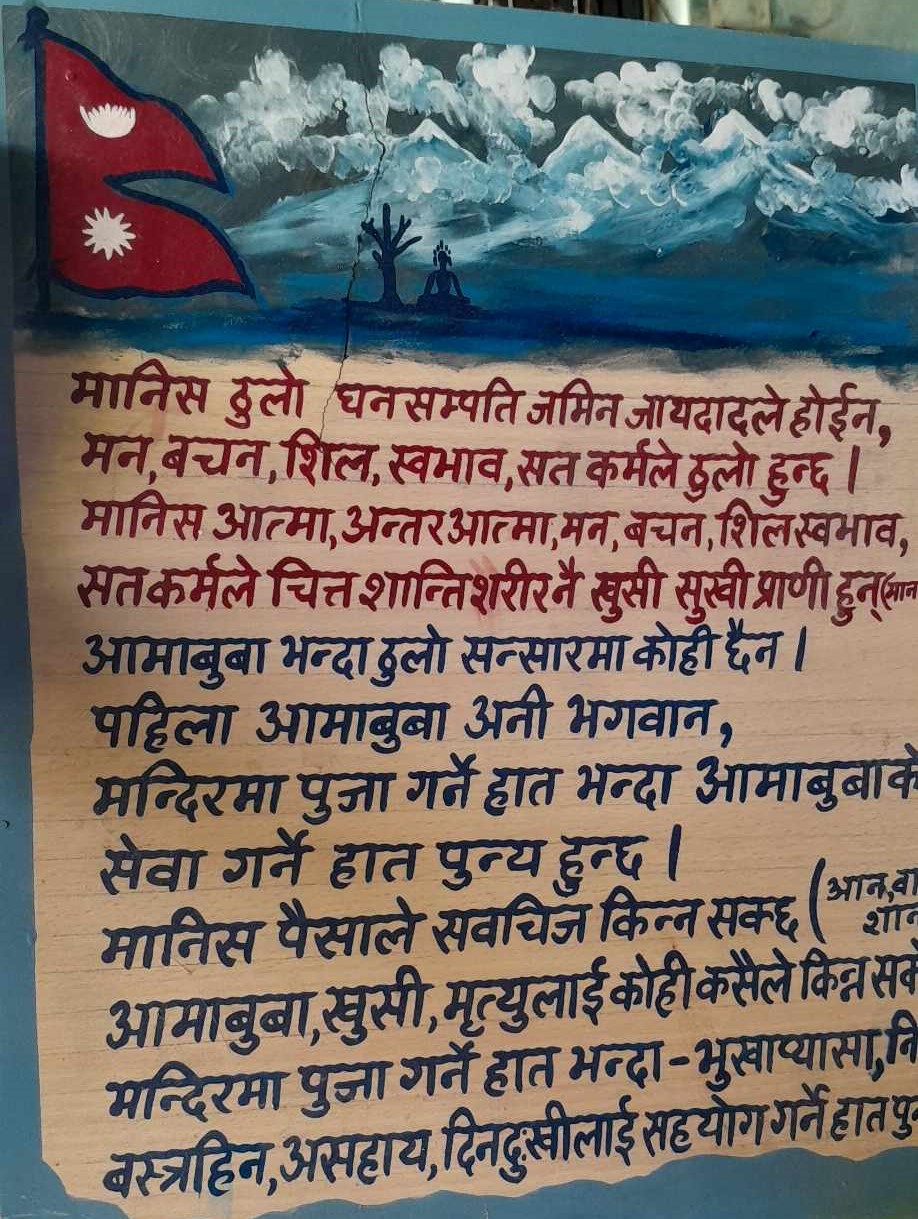 मानिस ठुलो घनसम्पति जमिन जायदादले होईन,
मन, बचन, शिल, स्वभाव, सत कर्मले ठुलो हुन्छ ।
मानिस आत्मा, अन्तरआत्मा, मन, बचन, शिल स्वभाव,
सतकर्मले चित्त शान्ति शरीर नै खुसी सुखी प्राणी हुन्
आमाबुबा भन्दा ठुलो सन्सारमा कोही छैन ।
पहिला आमाबुबा अनी भगवान,
मन्दिरमा पुजा गर्ने हात भन्दा आमाबुबाके
सेवा गर्ने हात पुन्य हुन्छ ।
मानिस पैसाले सवचिज किन्न सक्छ (
आमाबुबा, खुसी, मृत्युलाई कोही कसैले किन्न
मन्दिरमा पुजा गर्ने हात भन्दा - भुखाप्यासा,
बस्त्रहिन, असहाय, दिनदुःखीलाई सहयोग गर्ने हात